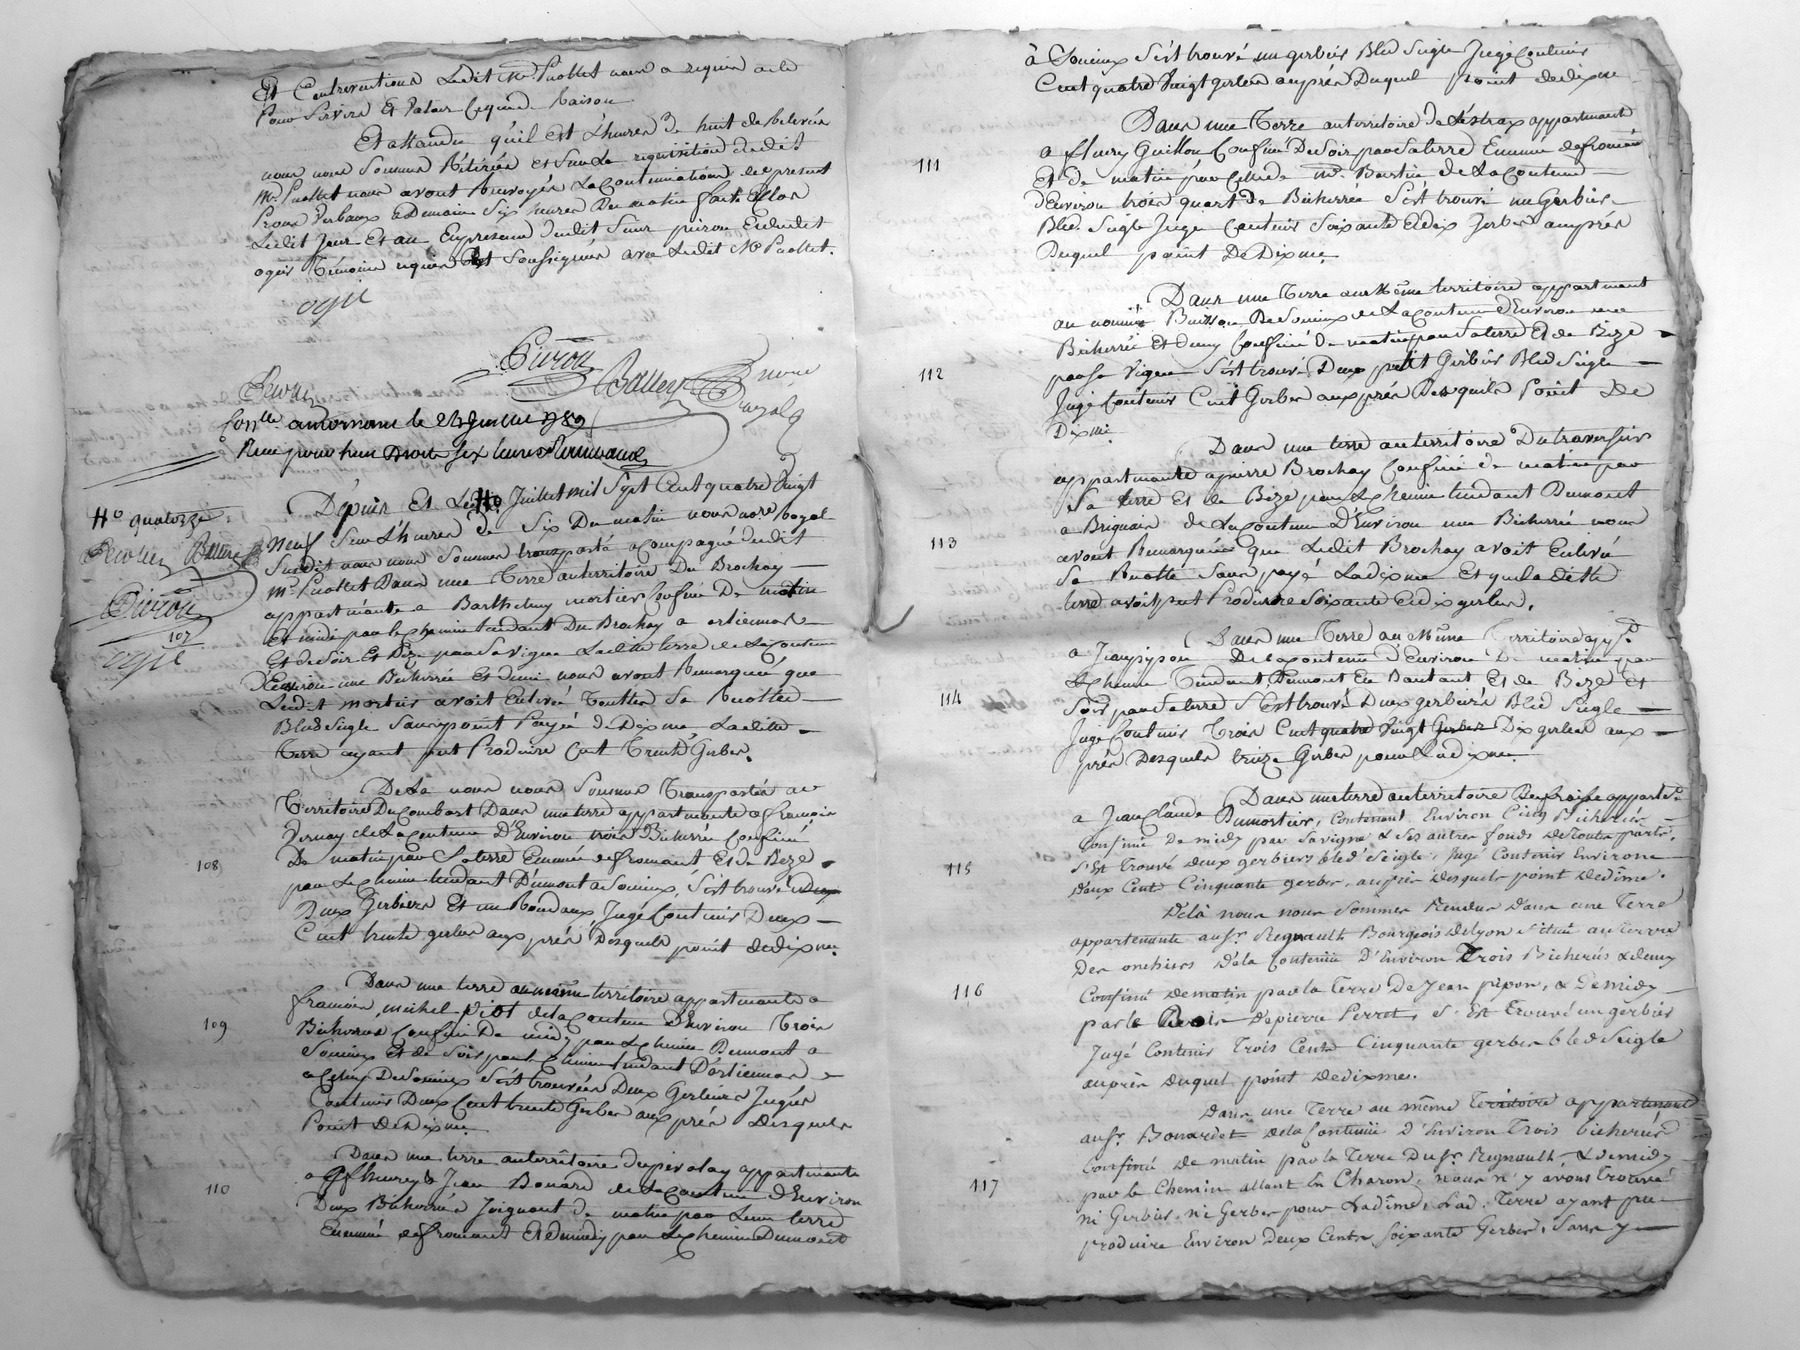 Et Contreventions Ledit Me. Puollet nous a requis acte
Pour Servir Et Valoir Ce que de Raison
Et attendu qu'il est L'heure de huit de Relevée
nous nous Sommes Retirés et Sur La requisition dudit
Me. Puollet nous avons Renvoyés La Continuation du present
Procès Verbaux a Demain Six heures Du matin fait Clos
Ledit Jour Et an En presence dudit Sieur pivrou Et dudit
ogir Témoins requis Et Soussignés avec Ledit Me Puollet.
ogir
Pivrou
Controllé a mornant le 24 Juillet 1789
Reçu pour huit Droits six livres
Ho quatorze
Pivrou
107
ogir
Depuis Et Le Ho Juillet mil Sept Cent quatre Vingt
Neuf Sur L'heure de Six Du matin nous nore. Royal
Susdit nous nous Sommes transporté acompagné dudit
Me. Puollet Dans une Terre au territoire Du Brochay
appartenante a Barthelmy mortier Confiné De matin
Et midi par le Chemin tendant Du Brochay a
Et de Soir Et Bize par Sa Vigne Ladite terre de La Contenue
D'Environ une Bicherée Et demi nous avons Remarqué que
Ledit mortier avoit Enlevé Toutte Sa Recolte
Bled Seigle Sans point Payé de Dixme Ladite
Terre ayant put Produire Cent Trente Gerbes.
De La nous nous Sommes Transportés au
Territoire Du Combart Dans une terre appartenante a francois
de La Contenue D'Environ trois Bicherée Confiné
108
De matin par Sa terre Emmée de froment Et de Bize
par Le Chemin tendant D'umont a Soucieux, S'est trouvé
Deux Gerbiers Et un Rondaux, Jugé Contenir Deux
Cent trente gerbes aux près Desquels point de dixme.
Dans une terre au même territoire appartenante a
francois michel Piot de la Contenue D'Environ Trois
109
Bicherées Confiné De midy par Le Chemin Dumont a
Soucieux Et de Soir par Le Chemin tendant
a Celuy De Soucieux S'est trouvées Deux Gerbiers Jugés
Contenir Deux Cent trente Gerbes aux près Desquels
Point De Dixme
Dans une terre au territoire du pivolay appartenante
110
a fleury & Jean Bonard de La Contenue d'Environ
Deux Bicherée Joignant De matin par Leur terre
Emmée de froment Et de midy par Le Chemin Dumont
à Soucieux S'est trouvé un gerbier Bled Seigle Jugé Contenir
Cent quatre Vingt gerbes auprès Duquel Point de dixme
Dans une Terre au territoire de Lestrax appartenant
111
a fleury Guillou Confiné De Soir par Sa terre Emmée de froment
Et de matin par Celle de Mr. Bastie de La Contenue
d'Environ trois quart De Bicherée S'est trouvé un Gerbier
Bled Seigle Jugé Contenir Soixante Et dix Gerbes auprès
Duquel point De Dixme
Dans une Terre au Même territoire appartenant
au nommé Buisson De Soucieux de La Contenue d'Environ une
Bicherée Et demy Confiné De matin par Sa terre Et de Bize
112
par Sa Vigne S'est trouvé Deux petit Gerbiers Bled Seigle
Jugé Contenir Cent Gerbes auxprès Desquels Point De
Dixme
Dans une terre au territoire Du traversier
appartenante a pierre Brochay Confiné de matin par
Sa terre Et de Bize par Le Chemin tendant Dumont
113
a Brignais de La Contenue D'Environ une Bicherée nous
avons Remarquée que Ledit Brochay avoit Enlevée
Sa Recolte Sans payé La dixme Et que La ditte
terre avoit put Produire Soixante Et dix gerbes.
Dans une Terre au Même Territoire appt.
a Jean pipon De La Contenue D'Environ De matin par
Le Chemin Tendant Dumont Et de Bize Et
114
Soir par Sa terre S'Est trouvé Deux gerbiers Bled Seigle
Jugé Contenir Trois Cent quatre Vingt Dix gerbes aux
près Desquels treize Gerbes pour La dixme
Dans une terre au territoire
a Jean Claude Dumortier, Contenant Environ Cinq Bicherées
Confiné De midy par Sa Vigne & Ses autres fonds De Toutes parts,
115
S'Est Trouvé deux gerbiers bled Seigle, Jugé Contenir Environ
deux Cent Cinquante gerbes, auprès desquels point de dîme.
De Là nous nous sommes Rendus Dans une Terre
appartenante au Sr. Regnault Bourgeois de Lyon Située au Terroir
Des De la Contenüe D'Environ Trois Bicherées & demy
116
Confiné De matin par la Terre De Jean pipon, & De midy
par le Bois De pierre Perret, S'Est Trouvé un gerbier
Jugé Contenir Trois Cents Cinquante gerbes bled Seigle
auprès duquel point de dixme.
Dans une Terre au même Territoire appartenant
au Sr. Bonardet de la Contenüe D'Environ Trois bicherées
Confiné De matin par la Terre du Sr. Regnault & de midy
117
par le Chemin allant En Charon, nous n'y avons Trouvé
ni Gerbier, ni Gerbes pour La dîme, Lad. Terre ayant pu
produire Environ Deux Cents Soixante Gerbes, Sans y